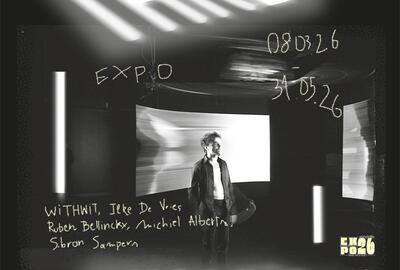 EXPO
080326
31.05.26
WiTHWiT, Ilke De Vries
Ruben Bellinckx, Michiel Alberts,
Sibran Sampers
EX
PO26